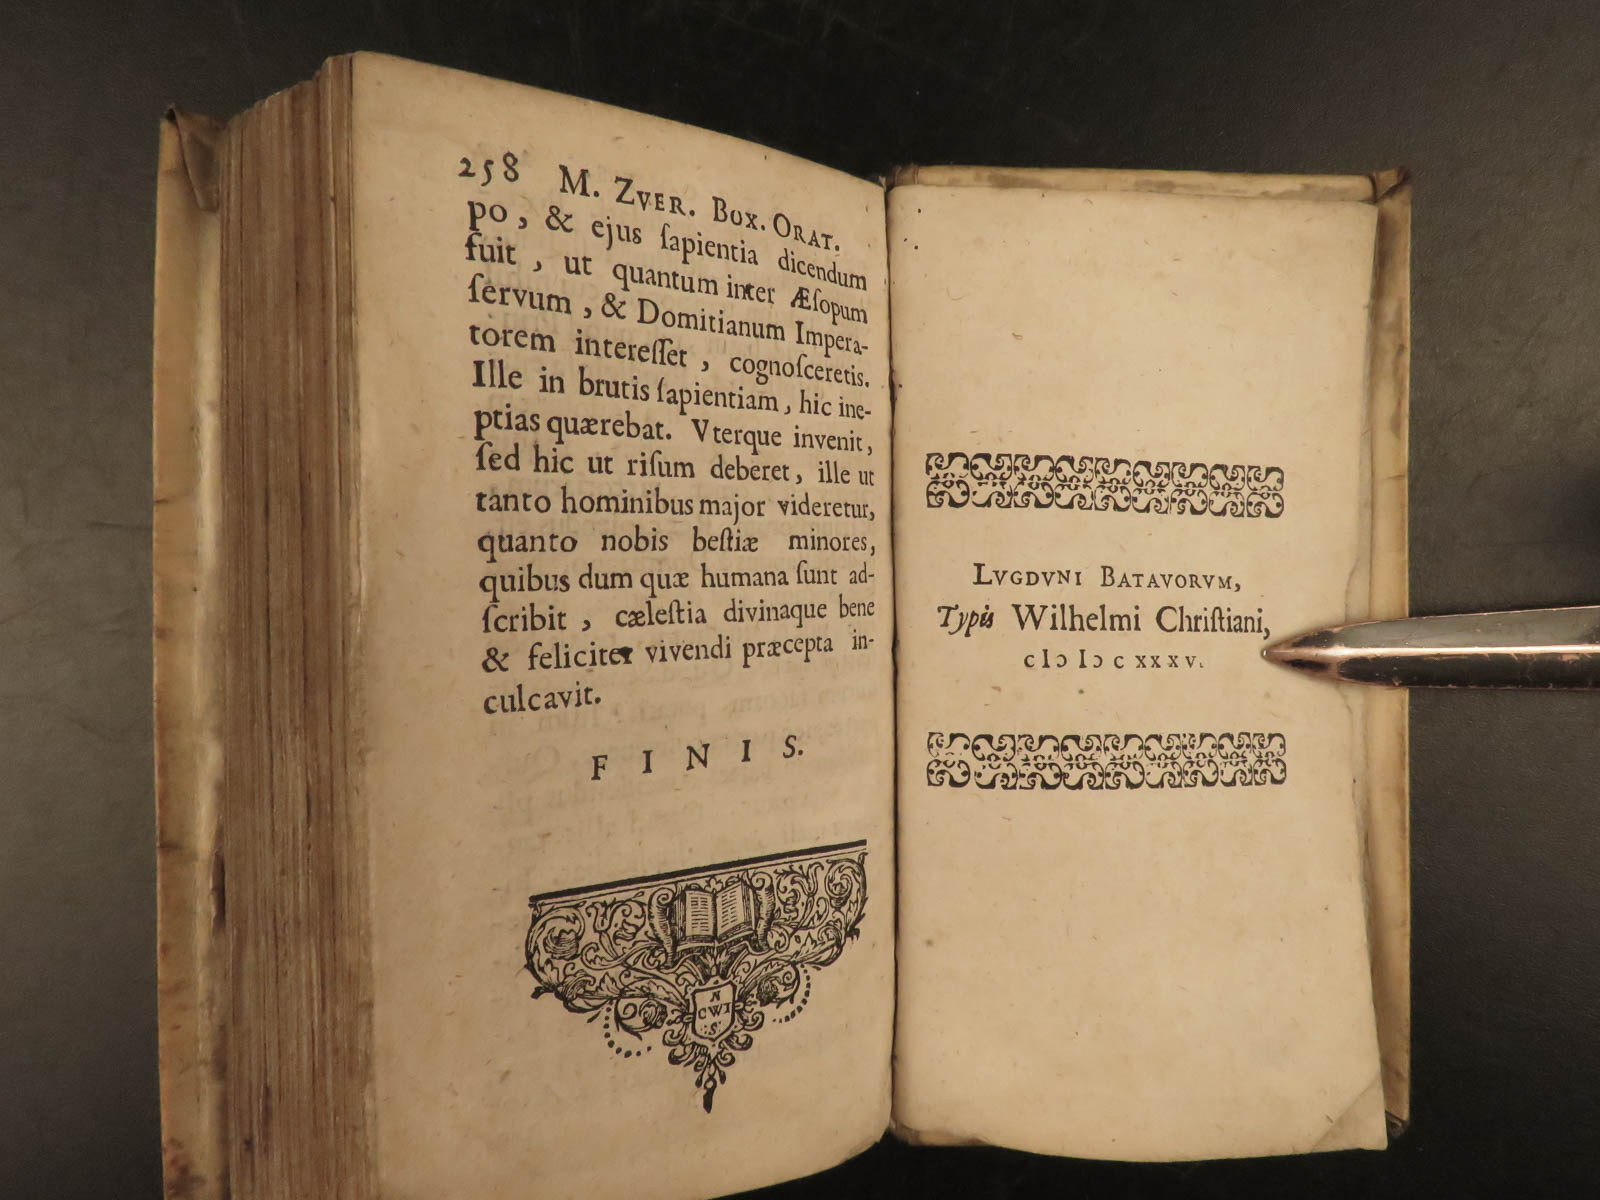 258 M. ZVER. BOX. ORAT.
po, & ejus ſapientia dicendum
fuit, ut quantum inter Æſopum
ſervum, & Domitianum Impera-
torem intereſſet, cognoſceretis.
Ille in brutis ſapientiam, hic ine-
ptias quærebat. Vterque invenit,
ſed hic ut riſum deberet, ille ut
tanto hominibus major videretur,
quanto nobis beſtiæ minores,
quibus dum quæ humana ſunt ad-
ſcribit, cæleſtia divinaque bene
& feliciter vivendi præcepta in-
culcavit.
FINIS.
N
CWI
S
LVGDVNI BATAVORVM,
Typis Wilhelmi Chriſtiani,
cIↄ Iↄ c xxxv.